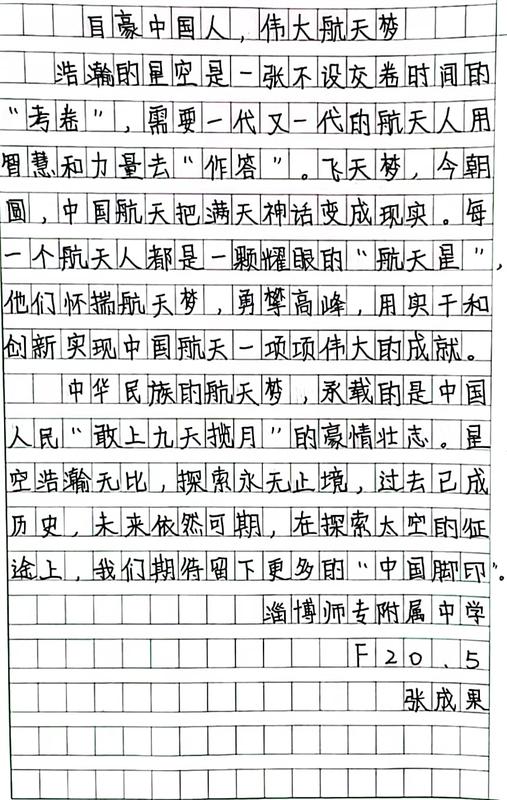 自豪中国人，伟大航天梦
浩瀚的星空是一张不设交卷时间的
“考卷”，需要一代又一代的航天人用
智慧和力量去“作答”。飞天梦，今朝
圆，中国航天把满天神话变成现实。每
一个航天人都是一颗耀眼的“航天星”，
他们怀揣航天梦，勇攀高峰，用实干和
创新实现中国航天一项项伟大的成就。
中华民族的航天梦，承载的是中国
人民“敢上九天揽月”的豪情壮志。星
空浩瀚无比，探索永无止境，过去已成
历史，未来依然可期，在探索太空的征
途上，我们期待留下更多的“中国脚印”。
淄博师专附属中学
F20.5
张成果